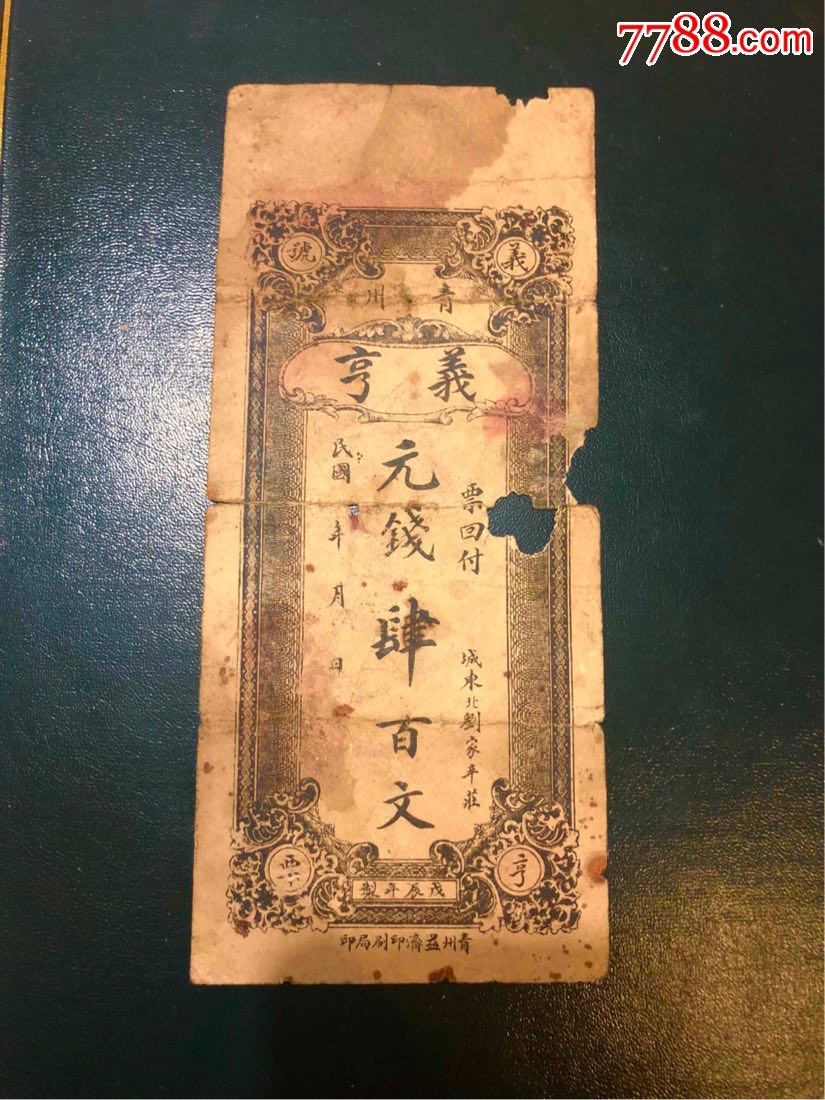 7788.com
義
號
青州
義亨
票回付
城東北劉家辛莊
元錢肆百文
民國 年 月 日
亨
票
戊辰年製
青州益濟印刷局印